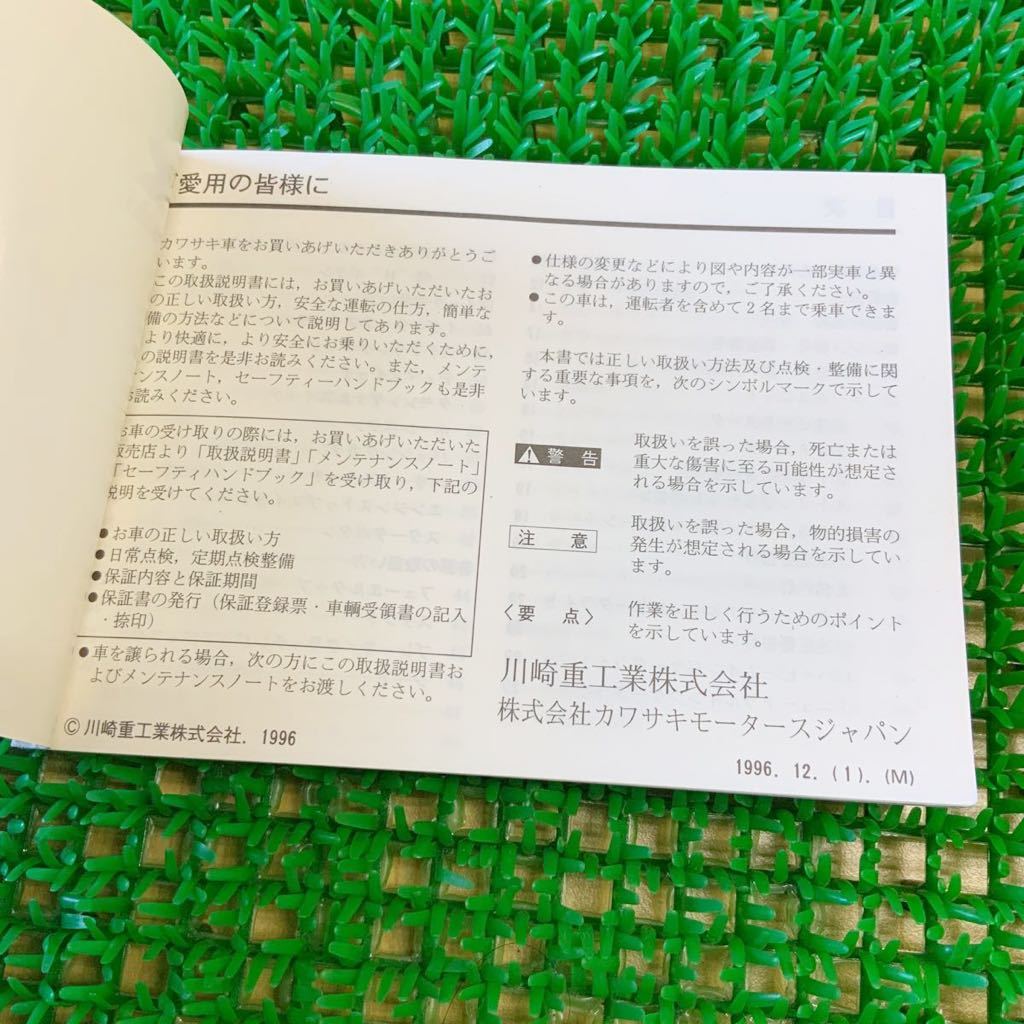 愛用の皆様に
カワサキ車をお買いあげいただきありがとうご
います。
この取扱説明書には，お買いあげいただいたお
の正しい取扱い方，安全な運転の仕方，簡単な
備の方法などについて説明してあります。
より快適に，より安全にお乗りいただくために，
の説明書を是非お読みください。また，メンテ
ンスノート，セーフティーハンドブックも是非
読みください。
お車の受け取りの際には，お買いあげいただいた
販売店より「取扱説明書」「メンテナンスノート」
「セーフティハンドブック」を受け取り，下記の
説明を受けてください。
●お車の正しい取扱い方
●日常点検，定期点検整備
●保証内容と保証期間
●保証書の発行（保証登録票・車輌受領書の記入
・捺印）
●車を譲られる場合，次の方にこの取扱説明書お
よびメンテナンスノートをお渡しください。
©川崎重工業株式会社．1996
●仕様の変更などにより図や内容が一部実車と異
なる場合がありますので，ご了承ください。
●この車は，運転者を含めて2名まで乗車できま
す。
本書では正しい取扱い方法及び点検・整備に関
する重要な事項を，次のシンボルマークで示して
います。
⚠警告
取扱いを誤った場合，死亡または
重大な傷害に至る可能性が想定さ
れる場合を示しています。
注　意
取扱いを誤った場合，物的損害の
発生が想定される場合を示してい
ます。
〈要　点〉
作業を正しく行うためのポイント
を示しています。
川崎重工業株式会社
株式会社カワサキモータースジャパン
1996. 12. (1). (M)